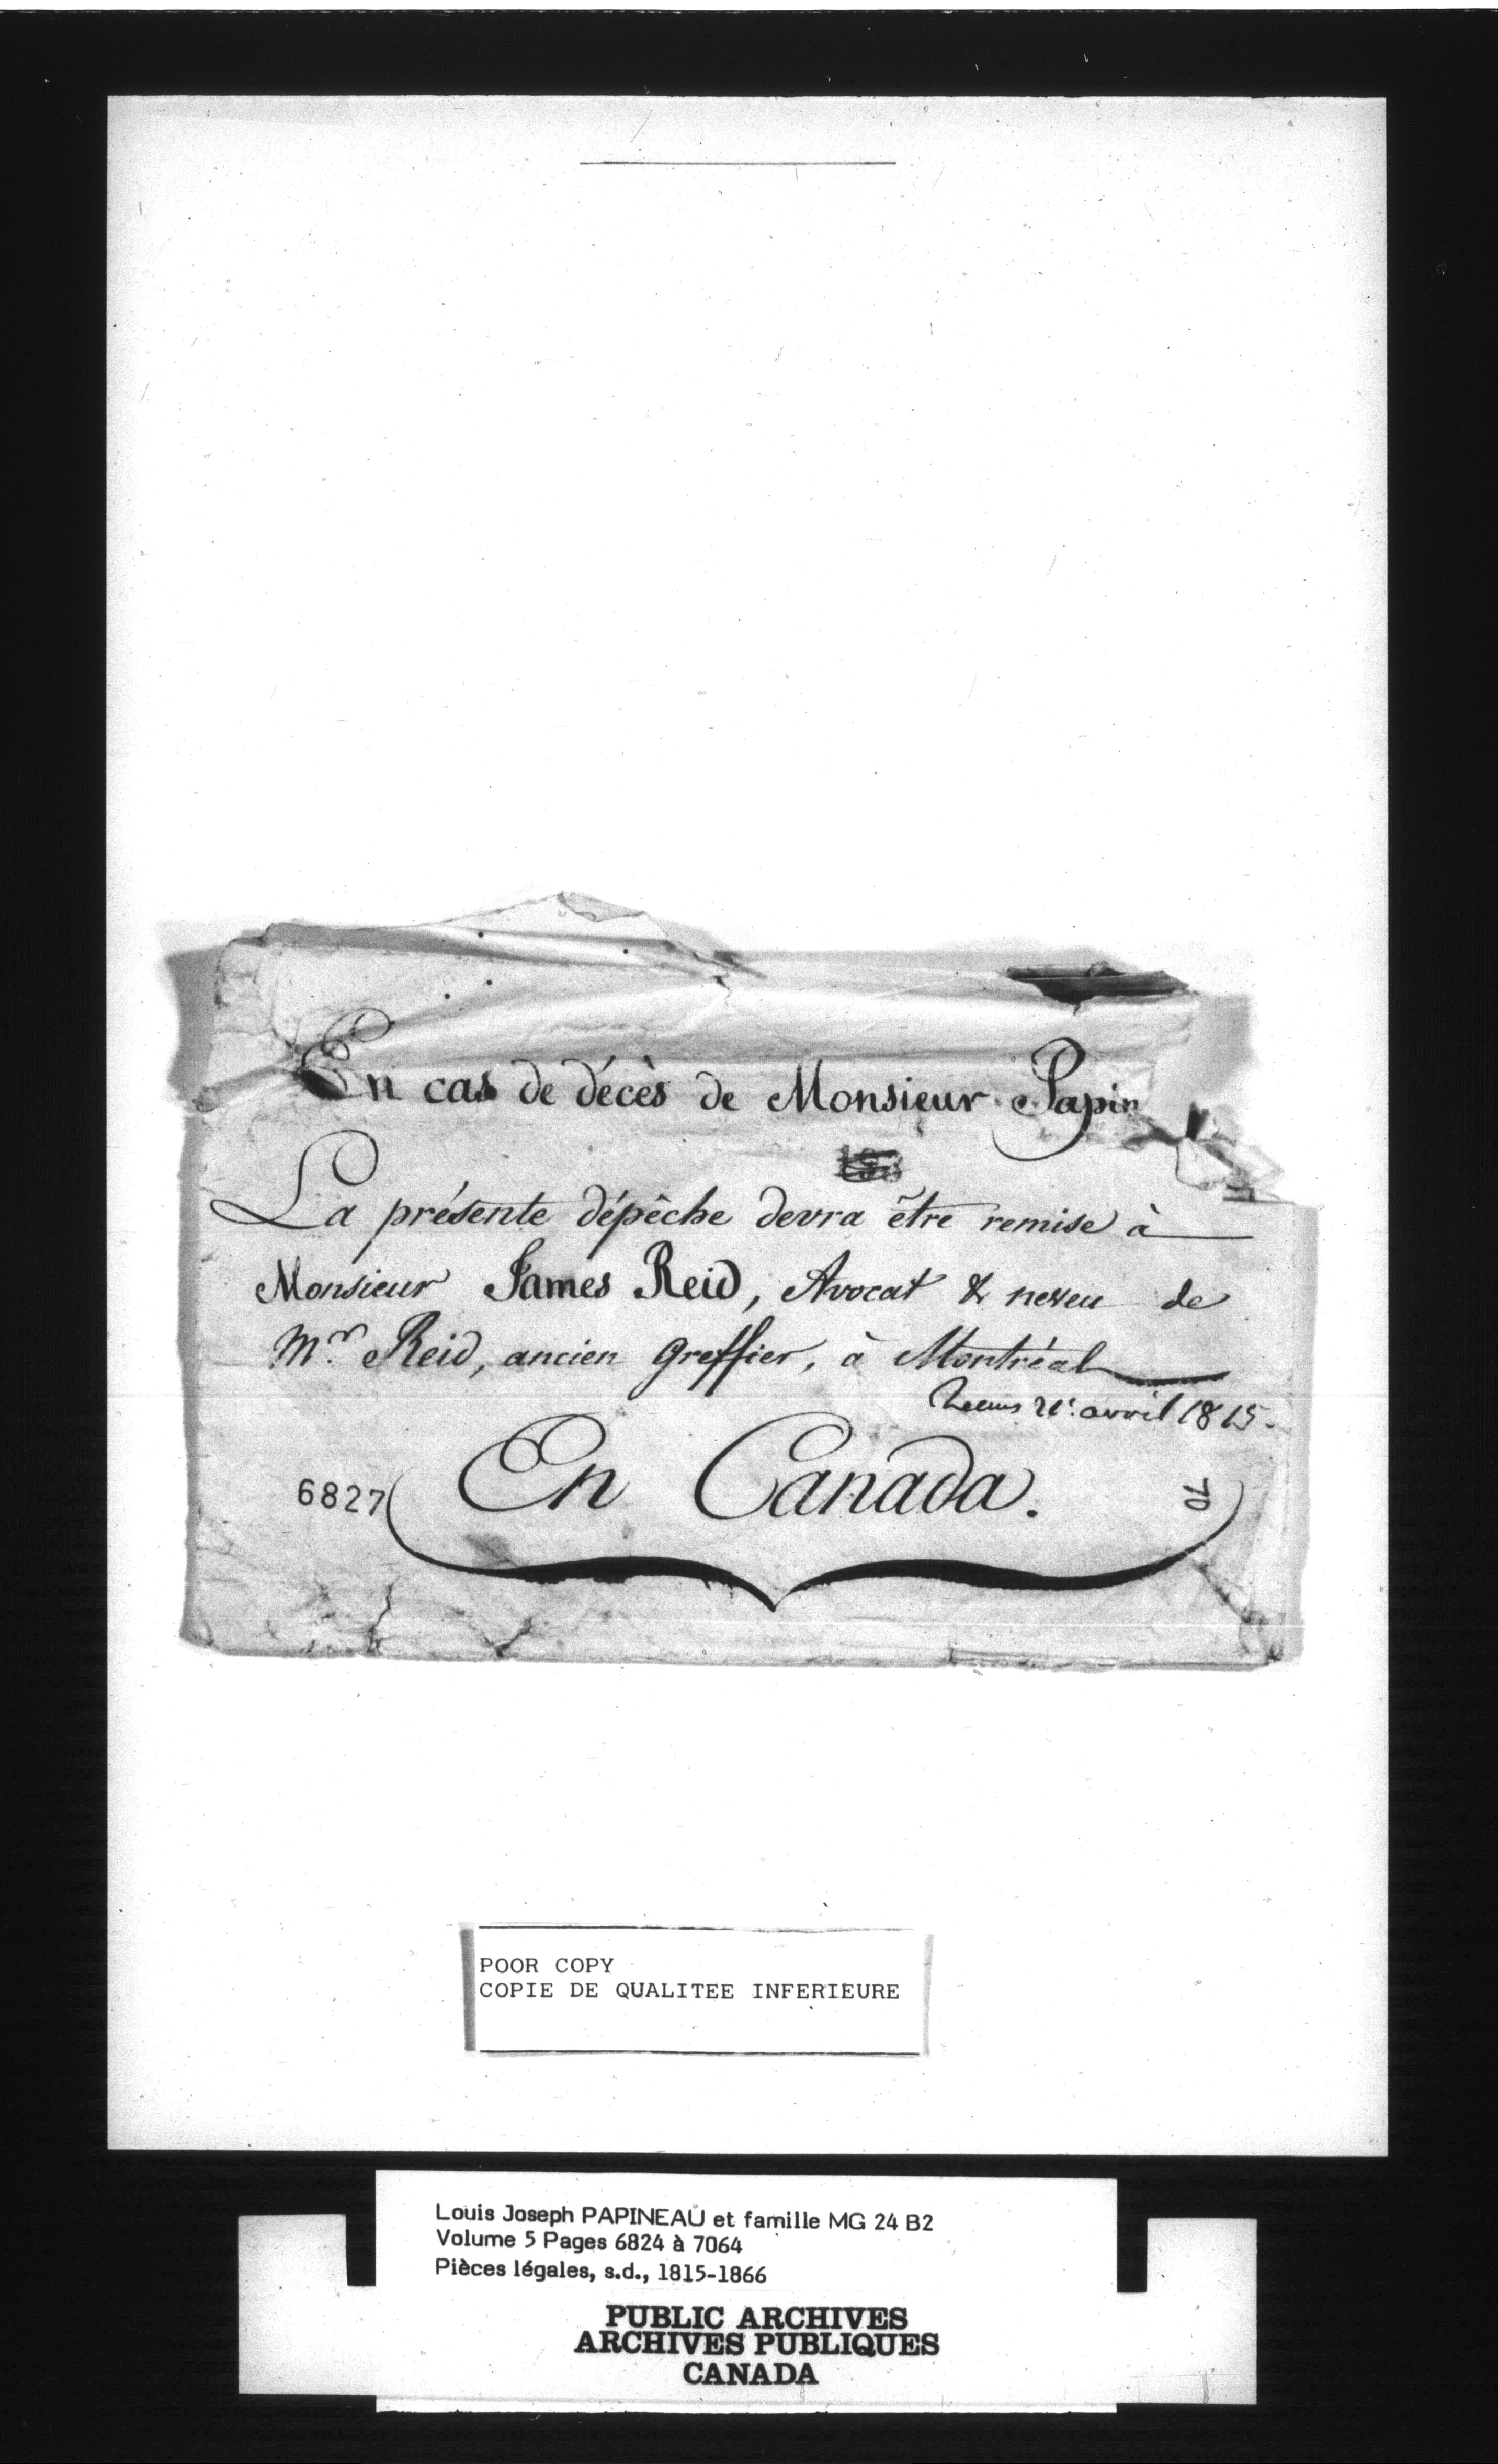 En cas de décès de Monsieur Papin
La présente dépêche devra être remise à
Monsieur James Reid, Avocat & neveu de
Mr. Reid, ancien Greffier, à Montréal
avril 1815.
6827 En Canada. 70
POOR COPY
COPIE DE QUALITEE INFERIEURE
Louis Joseph PAPINEAU et famille MG 24 B2
Volume 5 Pages 6824 à 7064
Pièces légales, s.d., 1815-1866
PUBLIC ARCHIVES
ARCHIVES PUBLIQUES
CANADA